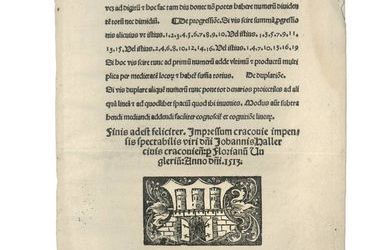 ues ad digitũ ⁊ hoc fac tam diu donec nõ potes habere numerũ diuiden
te totũ nec dimidiũ. ¶De progressiõe. Si vis scire summã progressio
nis alicuius vt istius .1.2.3.4.5.6.7.8.9.10. Vel istius. 1.3.5.7.9.11
13.15. Vel istius .2.4.6.8.10.12.14. vel istius. 1.4.7.10.13.16.19
Si hoc vis scire tunc ad primũ numerũ adde vltimũ ⁊ productũ multi
plica per medietatẽ locorũ ⁊ habes sum̃a totius. De duplatiõe.
Si vis duplare aliquẽ numerũ tunc ponetur denarios proiectiles ad ali
quã lineã ⁊ ad quodlibet spaciũ quod ibi inuenies. Modus aũt subtra
hendi mediandi addendi faciliter cognoscit̃ ex cognitiõe linearum.
Finis adest feliciter. Impressum cracouie impen
sis spectabilis viri dñi Johannis Haller
ciuis cracouieñ: ꝑ Florianũ Vn
gleriũ: Anno dñi. 1513.